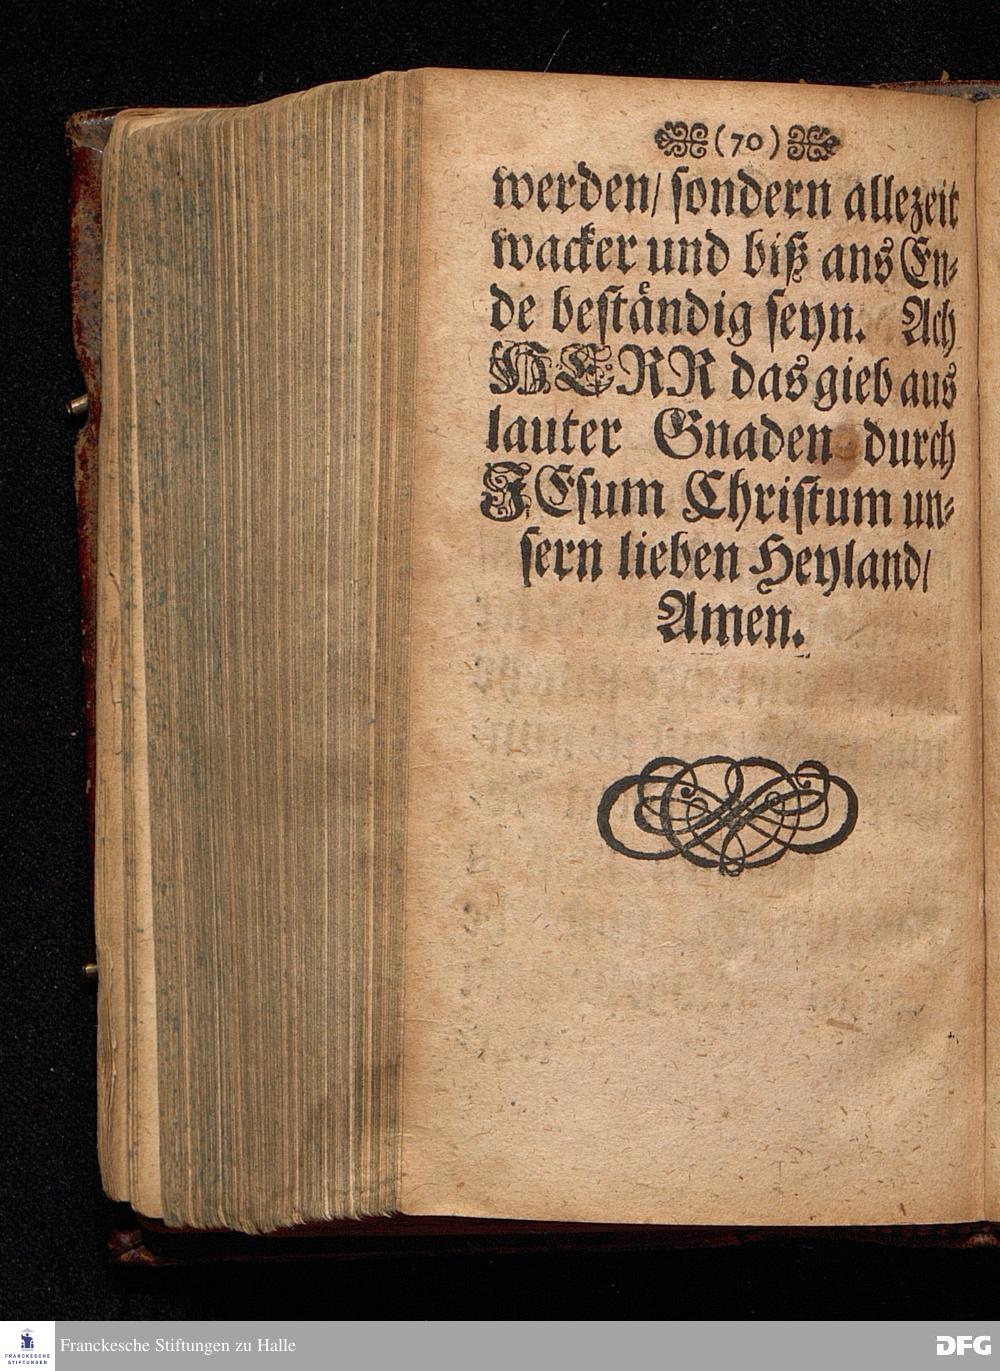 (70)
werden/ sondern allezeit
wacker und biß ans En-
de beständig seyn. Ach
HERR das gieb aus
lauter Gnaden durch
JEsum Christum un-
sern lieben Heyland/
Amen.
FRANCKESCHE
STIFTUNGEN
Franckesche Stiftungen zu Halle
DFG